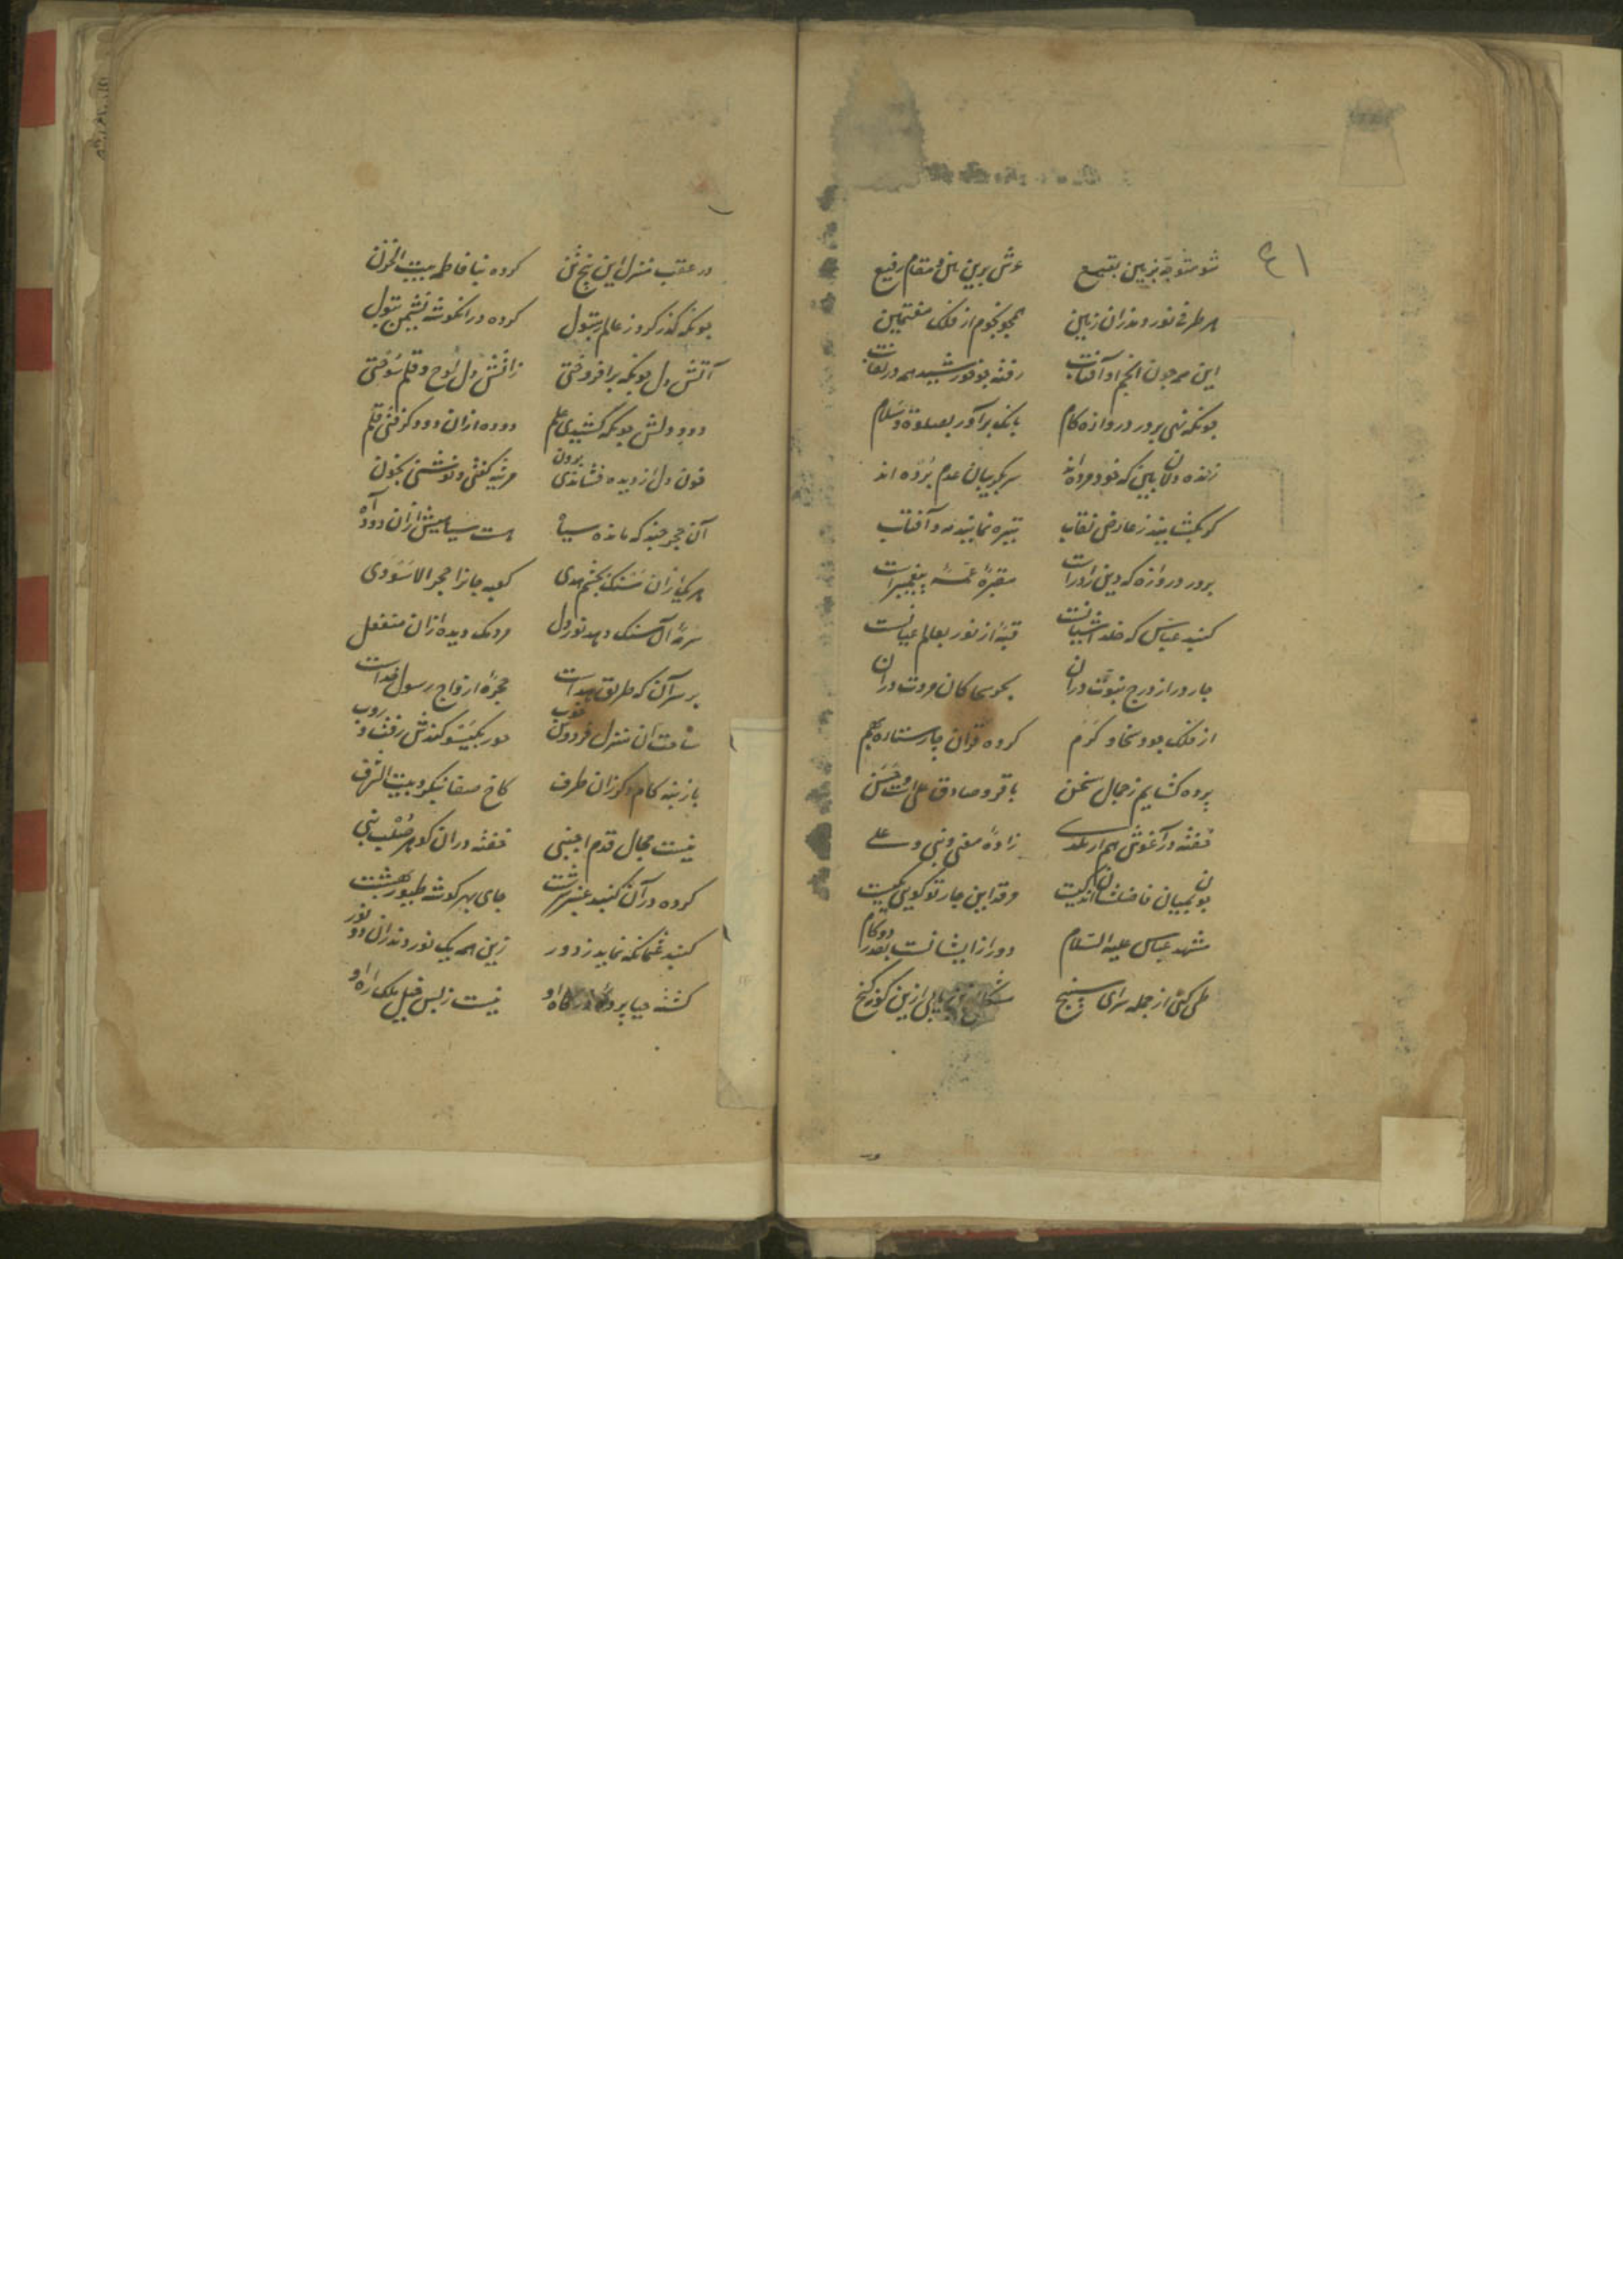 ۴۱
شو متوجه بزمین بقیع عرش برین بین و مقام رفیع
هر طرفی نور دمد زان زمین همچو نجوم از فلک هفتمین
این همه چون انجم و آفتاب رفته چو خورشید همه در نقاب
چونکه نهی بر در دروازه کام بانگ برآور بصلوة و سلام
زنده دلان بین که فرو مرده‌اند سر بگریبان عدم برده اند
گر بگشایند ز عارض نقاب تیره نمایند مه و آفتاب
بر در دروازه که دین را درست مقبرهٔ عمهٔ پیغمبرست
گنبد عباس که خلد آشیانست قبهٔ از نور بعالم عیانست
چار در از درج نبوت در آن کان مروت در آن
از فلک جود و سخا و کرم کرده قران چار ستاره بهم
پرده گشایم ز جمال سخن باقر و صادق علی است و حسن
خفته در آغوش هم زادهٔ نبی و علی
بود میان فاصلشان وقد این چار تو گویی یکیست
مشهد عباس علیه السلام دور از ایشانست بقدر دو گام
طی کنی از جمله سرای سپنج ازین کنج
در عقب منزل این پنج تن کرده بنا فاطمه بیت الحزن
چونکه گذر کرد ز عالم رسول کرده در انگوشه نشیمن بتول
آتش دل چونکه برافروختی زاتش دل لوح و قلم سوختی
دود دلش چونکه کشیدی علم دوده ازان دود گرفتی قلم
خون دل از دیده فشاندی برون مرثیه گفتی و نوشتی بخون
آن حجر چند که مانده سیاه هست سیاهیش ازان دود آه
هر یکی زان سنگ بچشم هدی کعبه جانرا حجر الاسودی
سرمهٔ آن سنگ دهد نور دل مردمک دیده ازان منفعل
بر سر آن که طریق هداست حجرهٔ ازواج رسول خداست
ساحت آن منزل خوب حور بگیسو کندش رفت و روب
باز بنه گام دگر زان طرف کاخ صفا نیکو و بیت الشرف
نیست مجال قدم اجنبی خفته در آن گوهر صلب نبی
کرده در آن گنبد عنبر سرشت جای بهر گوشه طیور بهشت
گنبد عثمان که نماید ز دور زین همه یک نور دمد زان دو نور
گشته حیا پردهٔ درگاه او نیست ز بس خیل ملک راه او